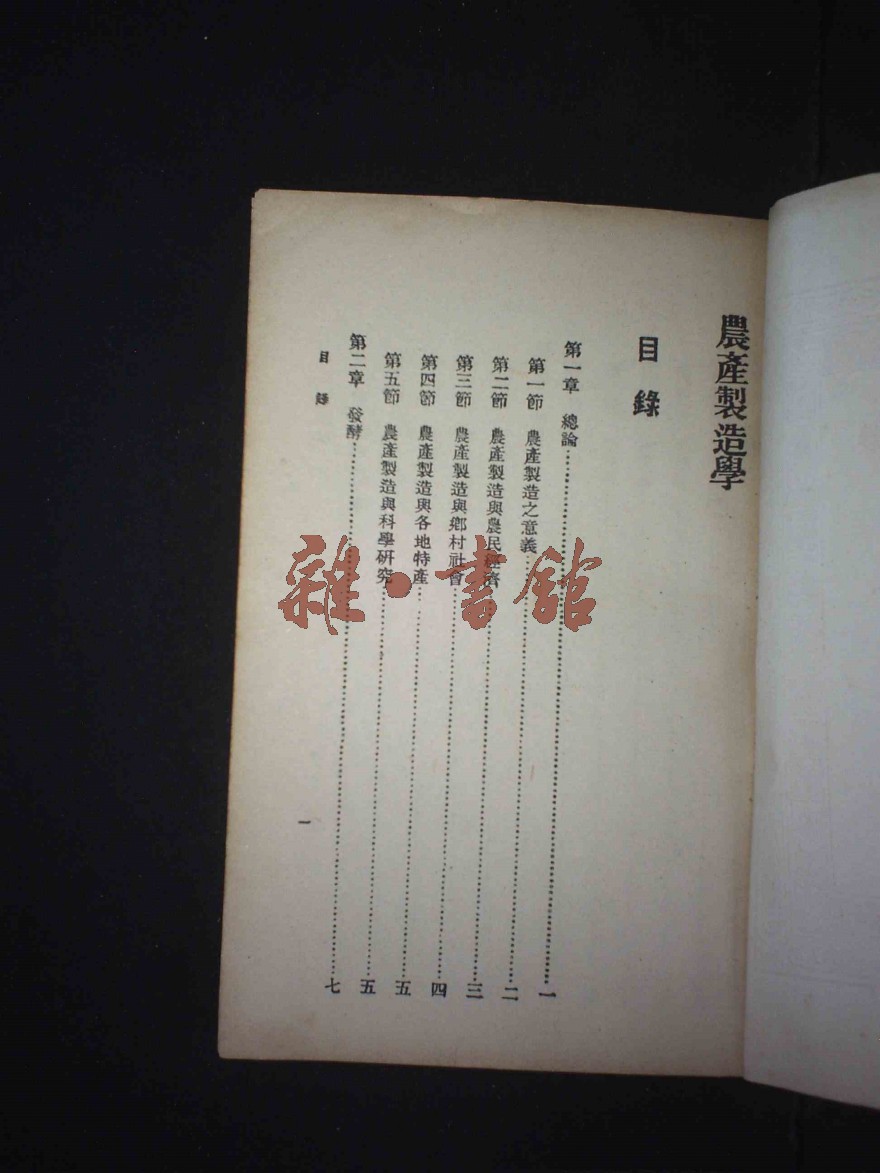 農產製造學
目錄
第一章 總論……一
第一節 農產製造之意義……二
第二節 農產製造與農民經濟……三
第三節 農產製造與鄉村社會……四
第四節 農產製造與各地特產……五
第五節 農產製造與科學研究……五
第二章 發酵……七
目錄
一
雜·書館